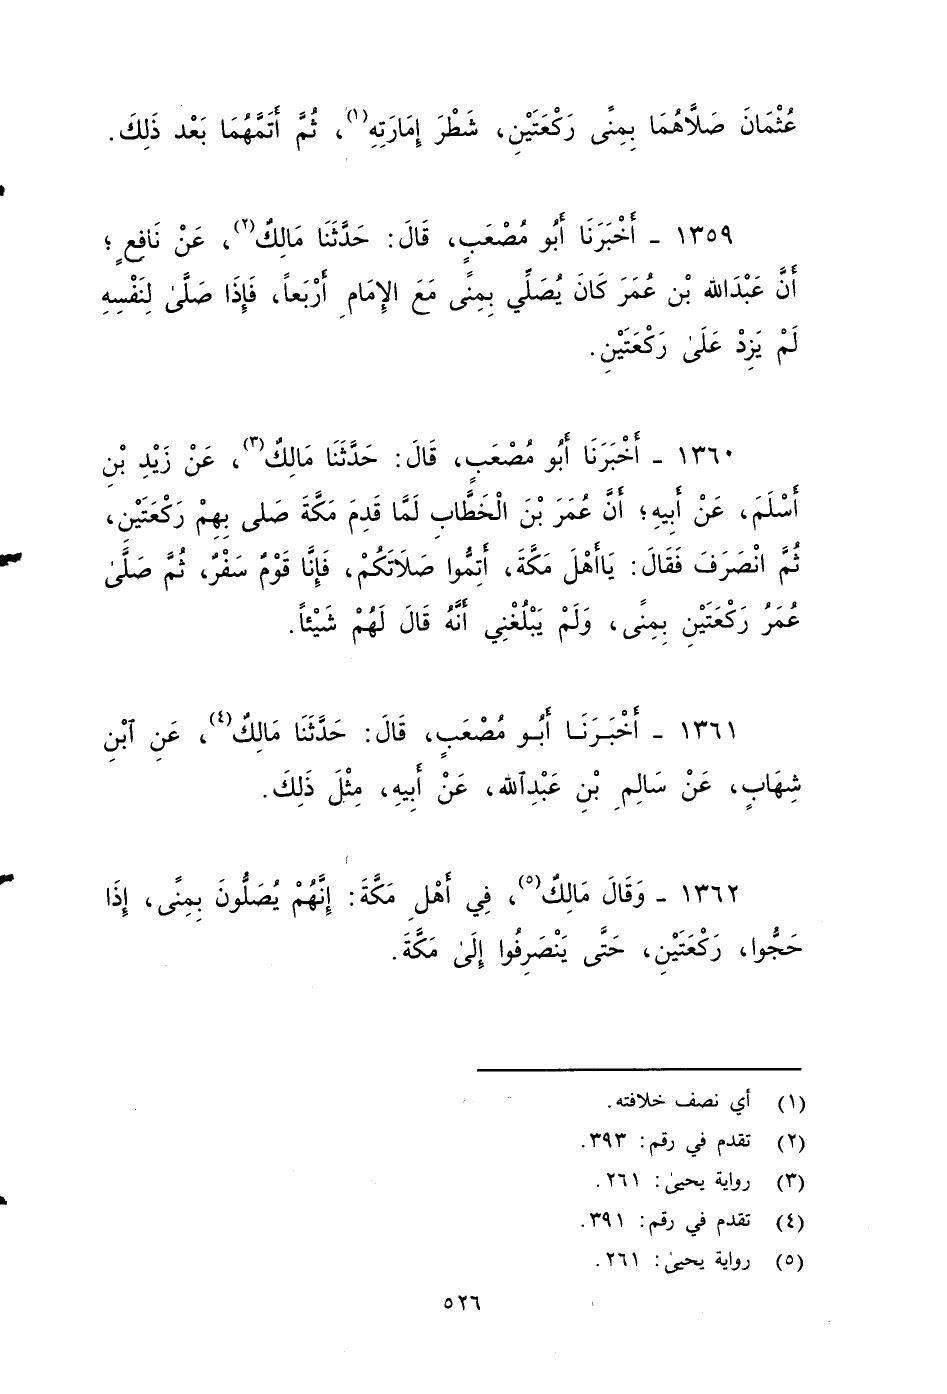 عُثْمَانَ صَلَّاهُمَا بِمِنًى رَكْعَتَيْنِ، شَطْرَ إِمَارَتِهِ(١)، ثُمَّ أَتَمَّهُمَا بَعْد ذَلِكَ.
١٣٥٩ ـ أَخْبَرَنَا أَبُو مُصْعَبٍ، قَالَ: حَدَّثَنَا مَالِكٌ(٢)، عَنْ نَافِعٍ؛
أَنَّ عَبْدَالله بْن عُمَرَ كَانَ يُصَلِّي بِمِنًى مَعَ الإِمَامِ أَرْبَعاً، فَإِذَا صَلَّىٰ لِنَفْسِهِ
لَمْ يَزِدْ عَلَىٰ رَكْعَتَيْنِ.
١٣٦٠ ـ أَخْبَرَنَا أَبُو مُصْعَبٍ، قَالَ: حَدَّثَنَا مَالِكٌ(٣)، عَنْ زَيْدِ بْنِ
أَسْلَمَ، عَنْ أَبِيهِ؛ أَنَّ عُمَرَ بْنَ الْخَطَّابِ لَمَّا قَدِمَ مَكَّةَ صَلى بِهِمْ رَكْعَتَيْنِ،
ثُمَّ انْصَرَفَ فَقَالَ: يَاأَهْلَ مَكَّةَ، أَتِمُّوا صَلَاتَكُمْ، فَإِنَّا قَوْمٌ سَفْرٌ، ثُمَّ صَلَّىٰ
عُمَرُ رَكْعَتَيْنِ بِمِنًى، وَلَمْ يَبْلُغْنِي أَنَّهُ قَالَ لَهُمْ شَيْئاً.
١٣٦١ ـ أَخْبَرَنَا أَبُو مُصْعَبٍ، قَالَ: حَدَّثَنَا مَالِكٌ(٤)، عَنِ ٱبْنِ
شِهَابٍ، عَنْ سَالِمِ بْنِ عَبْدِٱلله، عَنْ أَبِيهِ، مِثْلَ ذَلِكَ.
١٣٦٢ ـ وَقَالَ مَالِكٌ(٥)، فِي أَهْلِ مَكَّةَ: إِنَّهُمْ يُصَلُّونَ بِمِنًى، إِذَا
حَجُّوا، رَكْعَتَيْنِ، حَتَّى يَنْصَرِفُوا إِلَىٰ مَكَّةَ.
(١) أي نصف خلافته.
(٢) تقدم في رقم: ٣٩٣.
(٣) رواية يحيىٰ: ٢٦١.
(٤) تقدم في رقم: ٣٩١.
(٥) رواية يحيىٰ: ٢٦١.
٥٢٦